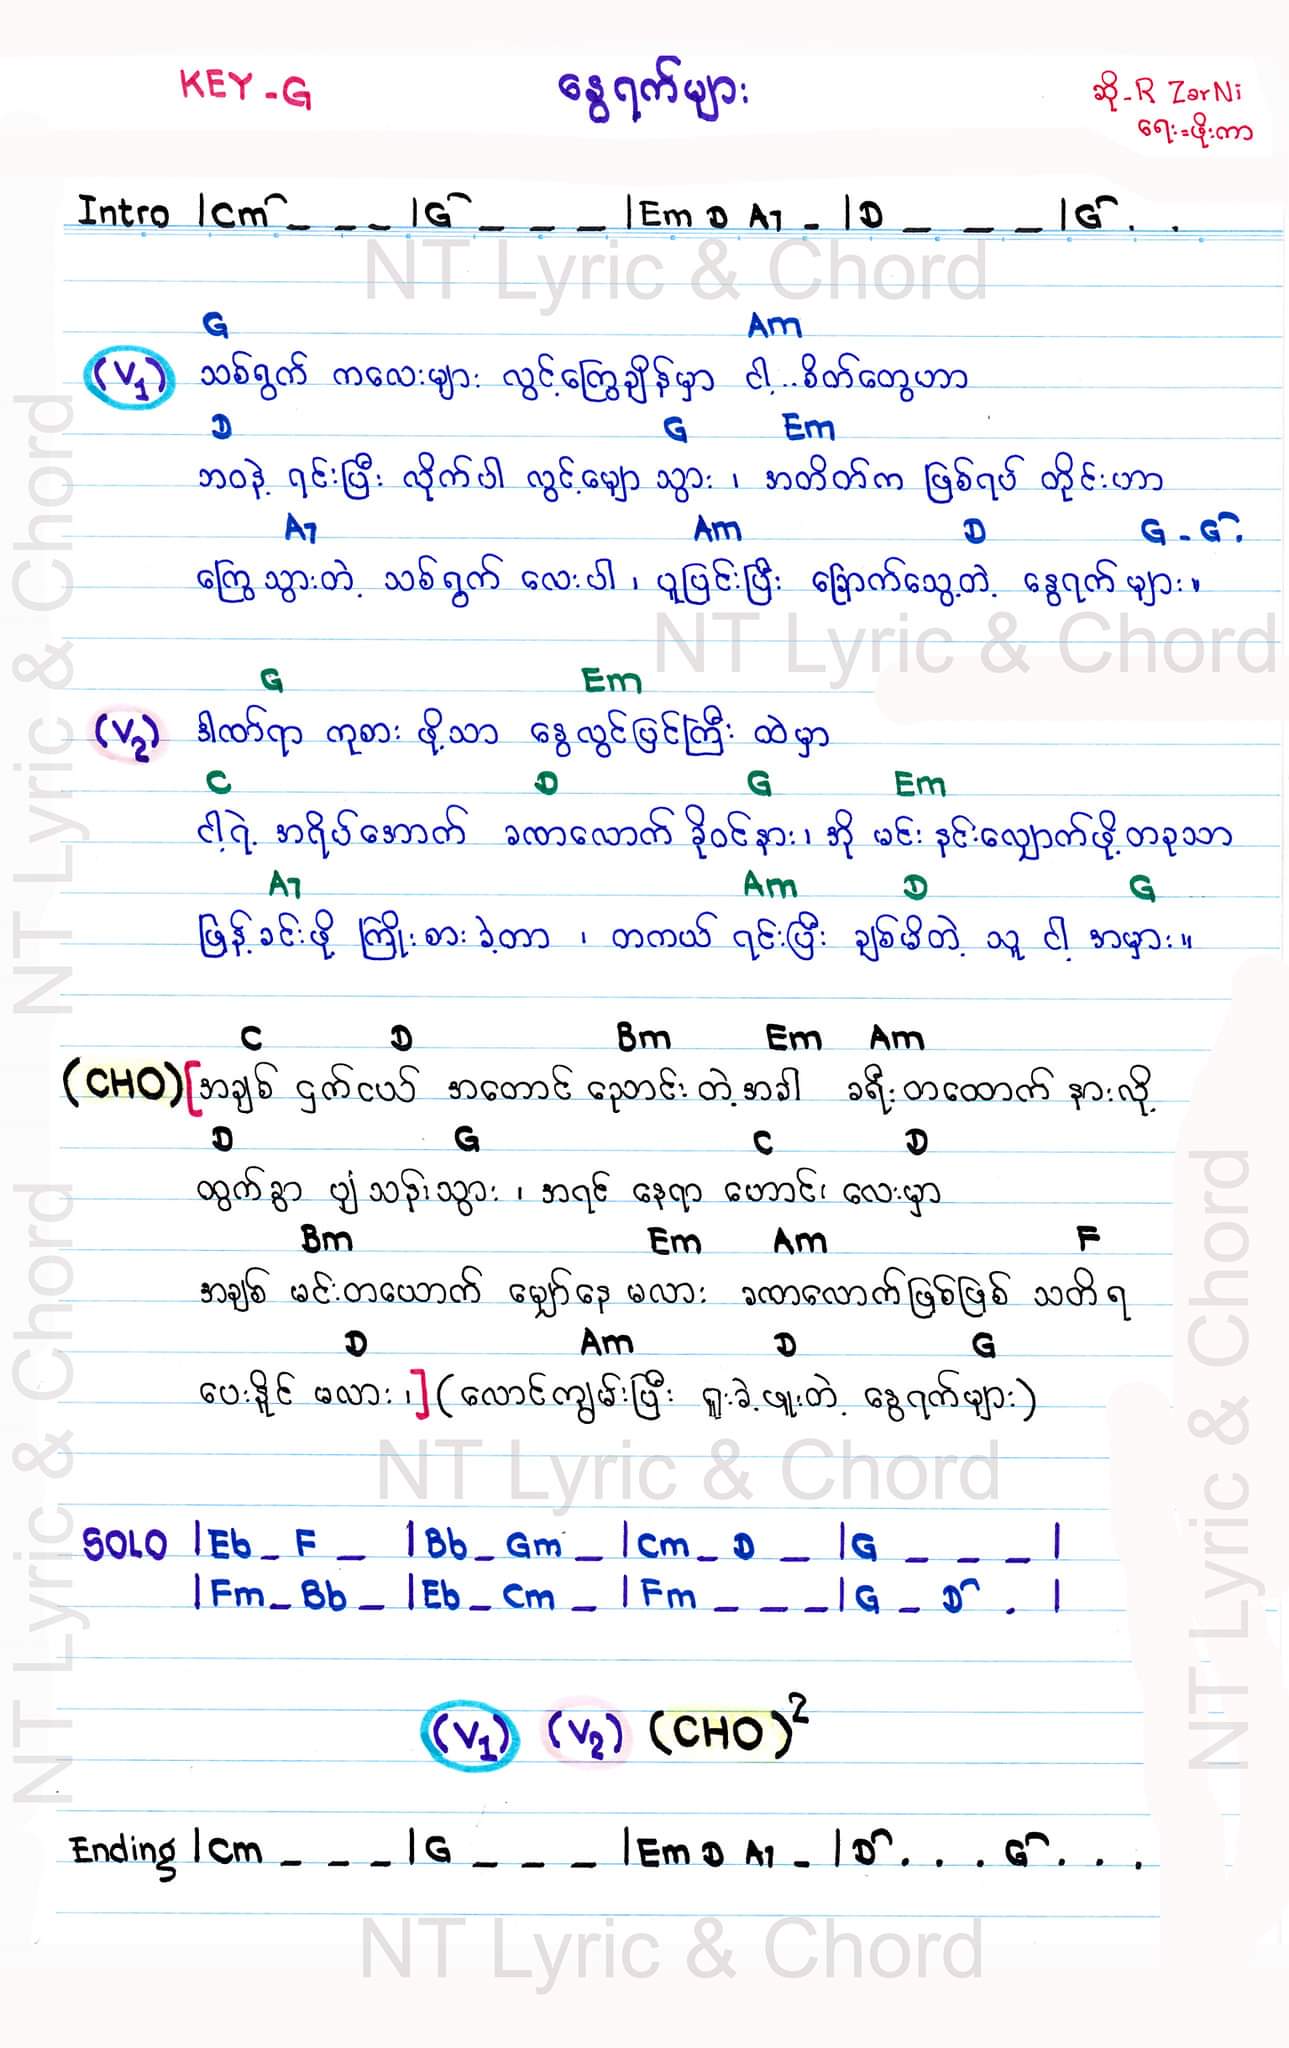 KEY - G နွေရက်များ ဆို - R ZarNi
ရေး = ဖိုးကာ
Intro |Cm⌒ _ _ _ |G⌒ _ _ _ |Em D A7 _ |D _ _ _ |G⌒ . .
NT Lyric & Chord
G Am
(V1) သစ်ရွက် ကလေးများ လွင့်ကြွေချိန်မှာ ငါ့..စိတ်တွေဟာ
D G Em
ဘဝနဲ့ ရင်းပြီး လိုက်ပါ လွင့်မျော သွား ၊ အတိတ်က ဖြစ်ရပ် တိုင်းဟာ
A7 Am D G - G⌒.
ကြွေသွားတဲ့ သစ်ရွက် လေးပါ ၊ ပူပြင်းပြီး ခြောက်သွေ့တဲ့ နွေရက် များ ။
NT Lyric & Chord
G Em
(V2) ဒါဏ်ရာ ကုစား ဖို့သာ နွေလွင်ပြင်ကြီး ထဲမှာ
C D G Em
ငါ့ရဲ့ အရိပ်အောက် ခဏလောက် ခိုဝင်နား ၊ အို မင်း နင်းလျှောက်ဖို့ တခုသာ
A7 Am D G
ဖြန့်ခင်းဖို့ ကြိုးစားခဲ့တာ ၊ တကယ် ရင်းပြီး ချစ်မိတဲ့ သူ ငါ့ အမှား ။
C D Bm Em Am
(CHO) [အချစ် ငှက်ငယ် အတောင် ညောင်းတဲ့အခါ ခရီးတထောက် နားလို့
D G C D
ထွက်ခွာ ပျံသန်းသွား ၊ အရင် နေရာ ဟောင်း လေးမှာ
Bm Em Am F
အချစ် မင်းတယောက် မျှော်နေ မလား ခဏလောက်ဖြစ်ဖြစ် သတိရ
D Am D G
ပေးနိုင် မလား ၊] (လောင်ကျွမ်းပြီး ရူးခဲ့ဖူးတဲ့ နွေရက်များ)
NT Lyric & Chord
SOLO |Eb _ F _ |Bb _ Gm _ |Cm _ D _ |G _ _ _ |
|Fm _ Bb _ |Eb _ Cm _ |Fm _ _ _ |G _ D⌒ . |
(V1) (V2) (CHO)²
Ending |Cm _ _ _ |G _ _ _ |Em D A7 _ |D⌒ . . . G⌒ . . .
NT Lyric & Chord
NT Lyric & Chord
NT Lyric & Chord
NT Lyric & Chord